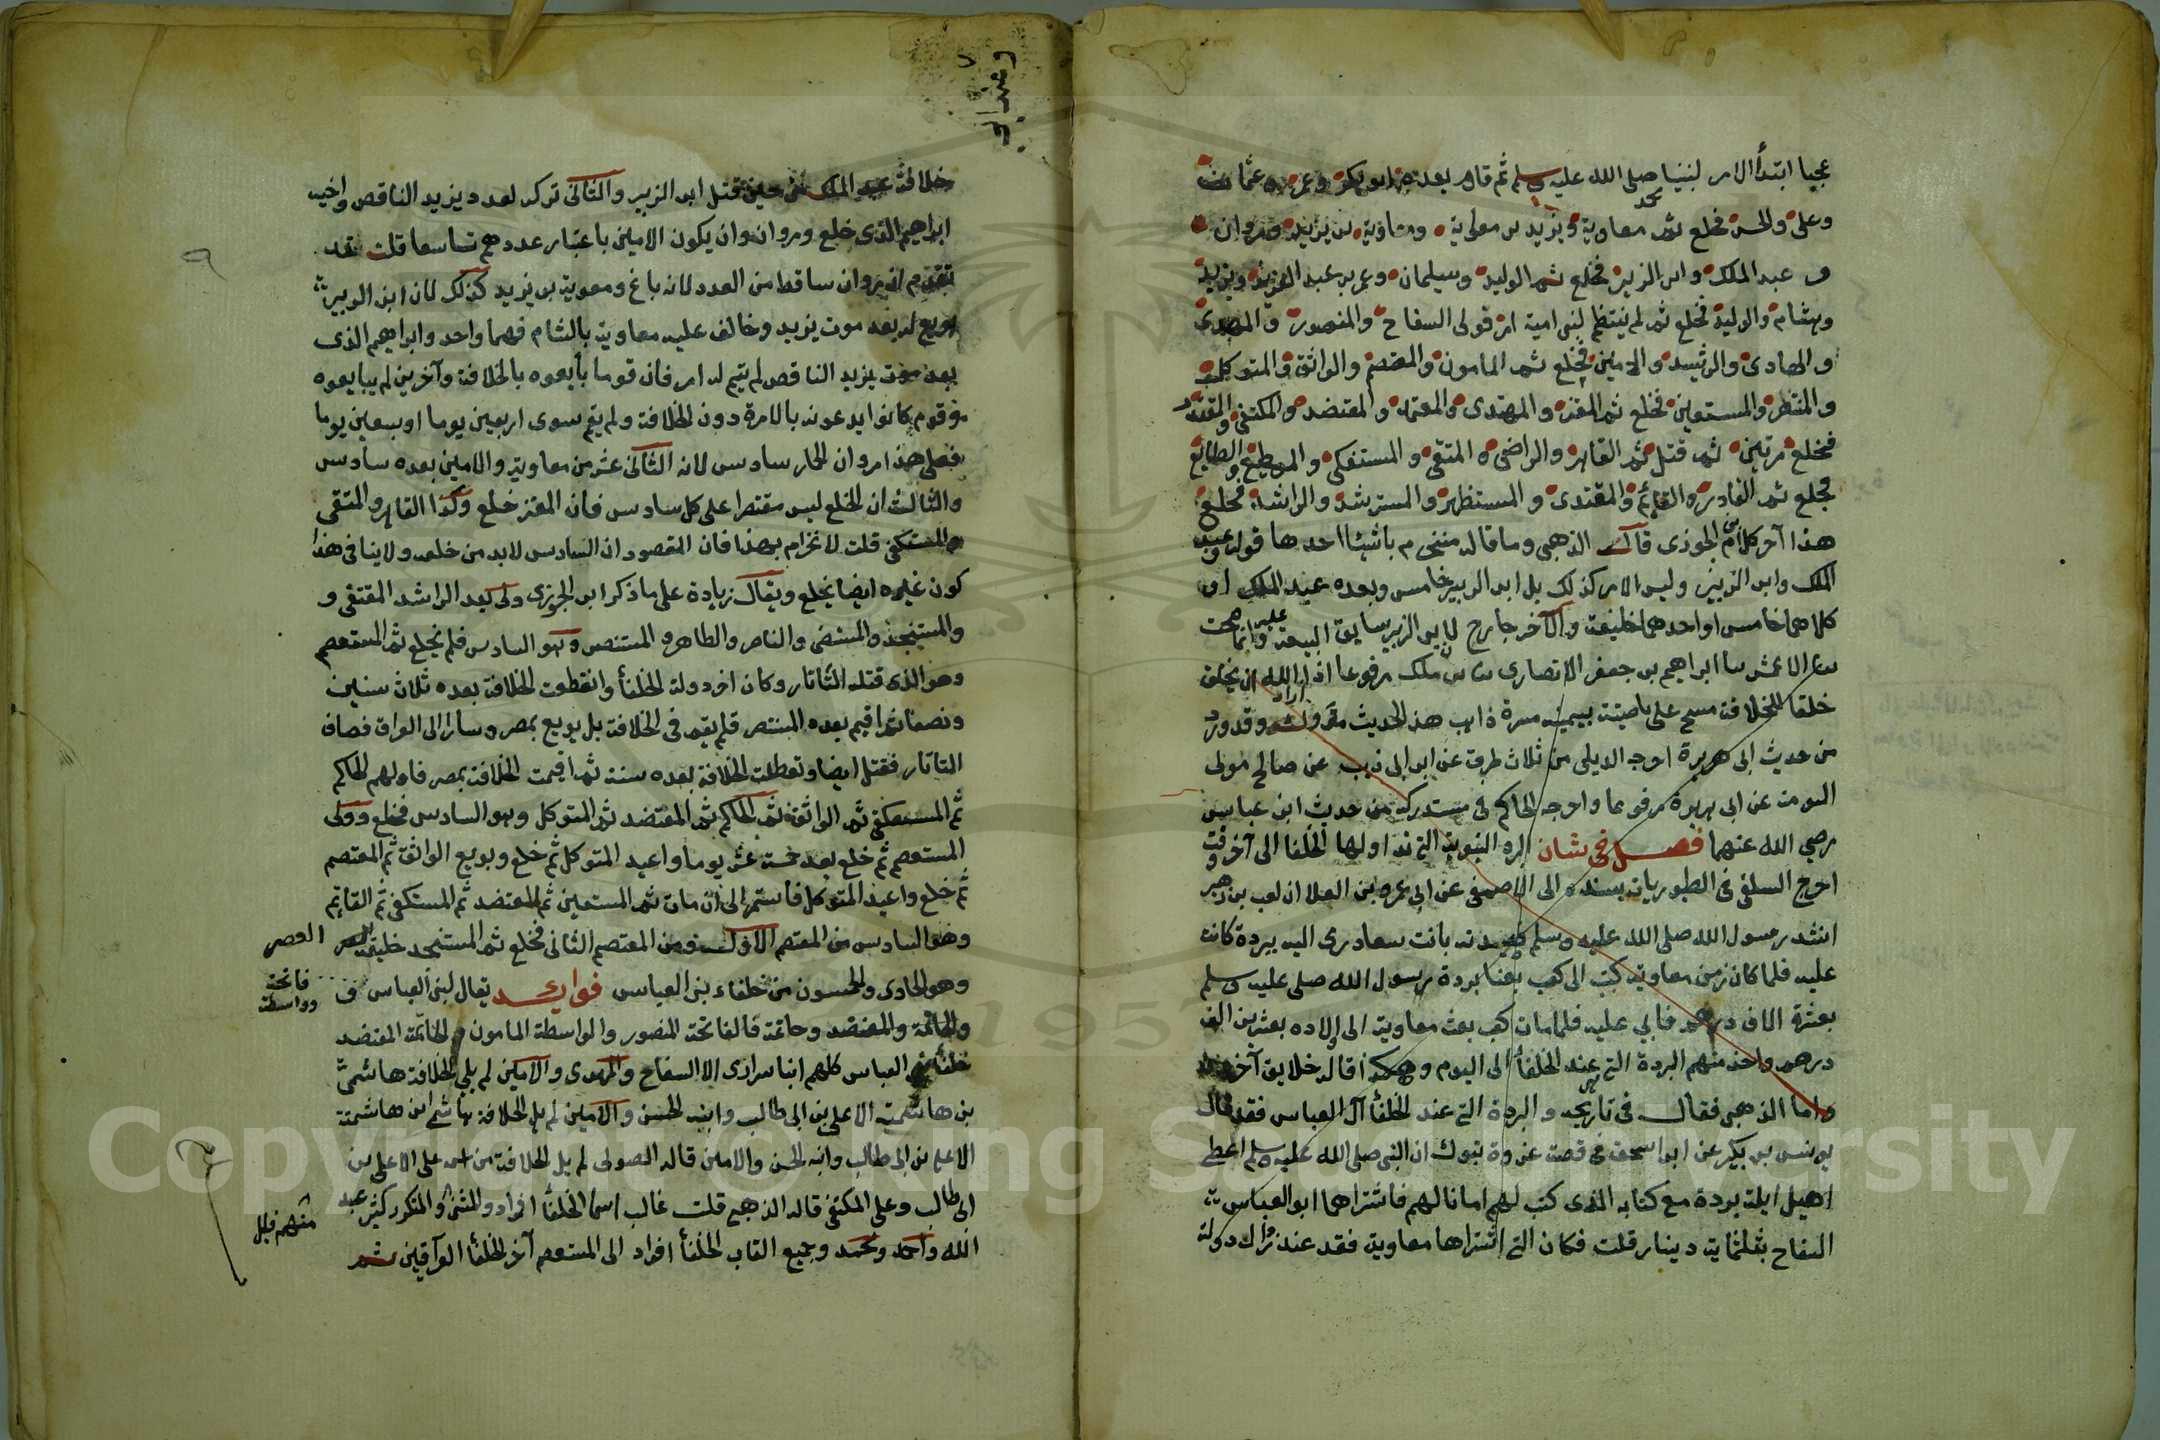 عجيبا ابتدأ الامر لنبينا محمد صلى الله عليه وسلم ثم قام بعده ابو بكر وعمر وعثمان
وعلى والحسن فخلع ثم معاوية ويزيد بن معوية ومعاوية بن يزيد ومروان
و عبد الملك وابن الزبير فخلع ثم الوليد وسليمان وعمر بن عبد العزيز ويزيد
وهشام والوليد فخلع ثم لم ينتظم لبنى امية امر فولى السفاح والمنصور والمهدى
والهادى والرشيد والامين فخلع ثم المامون والمعتصم والواثق والمتوكل
والمنتصر والمستعين فخلع ثم المعتز والمهتدى والمعتمد والمعتضد والمكتفى والمقتدر
فخلع مرتين ثم قتل ثم القاهر والراضى والمتقى والمستكفى والمطيع والطايع
فخلع ثم القادر والقايم والمقتدى والمستظهر والمسترشد والراشد فخلع
هذا آخر كلام ابن الجوزى قال الذهبى وما قاله منخرم باشيا احدها قوله وعبد
الملك وابن الزبير وليس الامر كذلك بل ابن الزبير خامس وبعده عبد الملك او
كلاهما خامس او احدهما خليفة والآخر خارج لان ابن الزبير سابق البيعة عليه وانما صحت
الاعمش سا ابراهيم بن جعفر الانصارى بن ملك مرفوعا اذا اراد الله ان يخلق
خلقا للخلافة مسح على ناصيته بيمينه ذاهب هذا الحديث وقد ورد
من حديث ابى هريرة اخرجه الديلى من ثلاث طرق عن ابن ابى ذيب عن صالح مولى
التومة عن ابى هريرة مرفوعا واخرجه الحاكم فى مستدركه من حديث ابن عباس
رضى الله عنهما فصل فى شان البردة النبوية التى تداولها الخلفا الى آخر وقت
اخرج السلفى فى الطيوريات بسنده الى الاصمعى عن ابى عمرو بن العلا ان كعب بن زهير
انشد رسول الله صلى الله عليه وسلم قصيدته بانت سعاد رمى اليه ببردة كانت
عليه فلما كان زمن معاوية كتب الى كعب بعنا بردة رسول الله صلى عليه وسلم
بعشرة الاف درهم فابي عليه فلما مات كعب بعث معاوية الى اولاده بعشرين الف
درهم واخذ منهم البردة التى عند الخلفا الى اليوم وهكذا قاله خلايق آخرون
واما الذهبى فقال فى تاريخه والبردة التى عند الخلفا آل العباس فقد قال
يونس بن بكير عن ابن اسحق فى قصة غزوة تبوك ان النبى صلى الله عليه وسلم اعطى
اهل ايلة بردة مع كتابه الذى كتب لهم امانا لهم فاشتراها ابو العباس
السفاح بثلثماية دينار قلت فكان التى اشتراها معاوية فقد عند زوال دولة
خلافة عبد الملك من حين قتل ابن الزبير والثانى تركه لعدد يزيد الناقص واخيه
ابراهيم الذى خلع ومروان وان يكون الامين باعتبار عددهم تاسعا قلت قد
تقدم ان مروان ساقط من العدد لانه باغ ومعوية بن يزيد كذلك لان ابن الزبير
بويع له بعد موت يزيد وخالف عليه معاوية بالشام فهما واحد وابراهيم الذى
بعد موت يزيد الناقص لم يتم له امر فان قوما بايعوه بالخلافة وآخرين لم يبايعوه
وقوم كانوا يدعونه بالامرة دون الخلافة ولم يقم سوى اربعين يوما او سبعين يوما
فعلى هذا مروان الحمار سادس لانه الثانى عشر من معاوية والامين بعده سادس
والثالث ان الخلع ليس مقتصرا على كل سادس فان المعتز خلع وكذا القاهر والمتقى
والمستكفى قلت لا انخرام بهذا فان المقصود ان السادس لابد من خلعه ولا ينافى هذا
كون غيره ايضا يخلع ويقال زيادة على ما ذكر ابن الجوزى ولى بعد الراشد المقتفى و
والمستنجد والمستضى والناصر والظاهر و المستنصر وهو السادس فلم يخلع ثم المستعصم
وهو الذى قتله التاتار وكان اخر دولة الخلفا وانقطعت الخلافة بعده ثلاث سنين
ونصفا ثم اقيم بعده المستنصر فلم يقم فى الخلافة بل بويع بمصر وسار الى العراق فصاف
التاتار فقتل ايضا وتعطلت الخلافة بعده سنة ثم اقيمت الخلافة بمصر فاولهم الحاكم
ثم المستكفى ثم الواثق ثم الحاكم ثم المعتضد ثم المتوكل وهو السادس فخلع وولى
المستعصم ثم خلع بعد خمسة عشر يوما واعيد المتوكل ثم خلع وبويع الواثق ثم المعتصم
ثم خلع واعيد المتوكل فاستمر الى ان مات ثم المستعين ثم المعتضد ثم المستكفى ثم القايم
وهو السادس من المعتصم الاول ومن المعتصم الثانى فخلع ثم المستنجد خليفة العصر
وهو الحادى والخمسون من خلفاء بنى العباس فوايد يقال لبنى العباس فاتحة وواسطة
وخاتمة فالفاتحة المنصور والواسطة المامون والخاتمة المعتضد
خلفا بنى العباس كلهم ابنا سرارى الا السفاح والمهدى والامين لم يلي الخلافة هاشمى
بن هاشمية الا على بن ابى طالب وابنه الحسن والامين لم يل الخلافة هاشمى ابن هاشمية
الا على بن ابى طالب وابنه الحسن والامين قاله الصولى لم يل الخلافة من اسمه على الا على بن
ابى طالب وعلى المكتفى قاله الذهبى قلت غالب اسما الخلفا افراد والمثنى منهم قليل والمتكرر كثير عبد
الله واحمد ومحمد وجميع القاب الخلفا افراد الى المستعصم آخر الخلفا العراقيين ثم
Copyright © King Saud University
1957